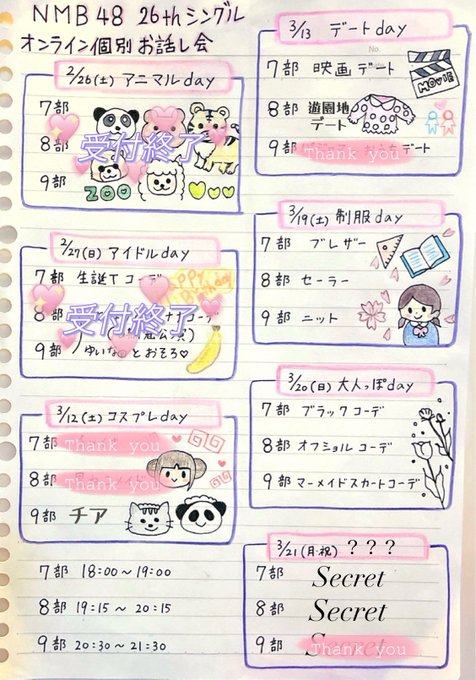 NMB48 26thシングル
オンライン個別お話し会
2/26(土) アニマルday
7部
8部
受付終了
9部
ZOO
2/27(日) アイドルday
7部 生誕Tコーデ
Birthday
8部
受付終了
コーデ
9部 ゆいな
とおそろ♡
3/12(土) コスプレday
7部 Thank you
8部 Thank you
9部 チア
7部 18:00～19:00
8部 19:15～20:15
9部 20:30～21:30
3/13 デートday
No.
7部 映画デート
MOVIE
8部 遊園地
デート
9部 Thank you デート
3/19(土) 制服day
7部 ブレザー
8部 セーラー
9部 ニット
3/20(日) 大人っぽday
7部 ブラックコーデ
8部 オフショルコーデ
9部 マーメイドスカートコーデ
3/21(月・祝) ？？？
7部 Secret
8部 Secret
9部 Secret
Thank you